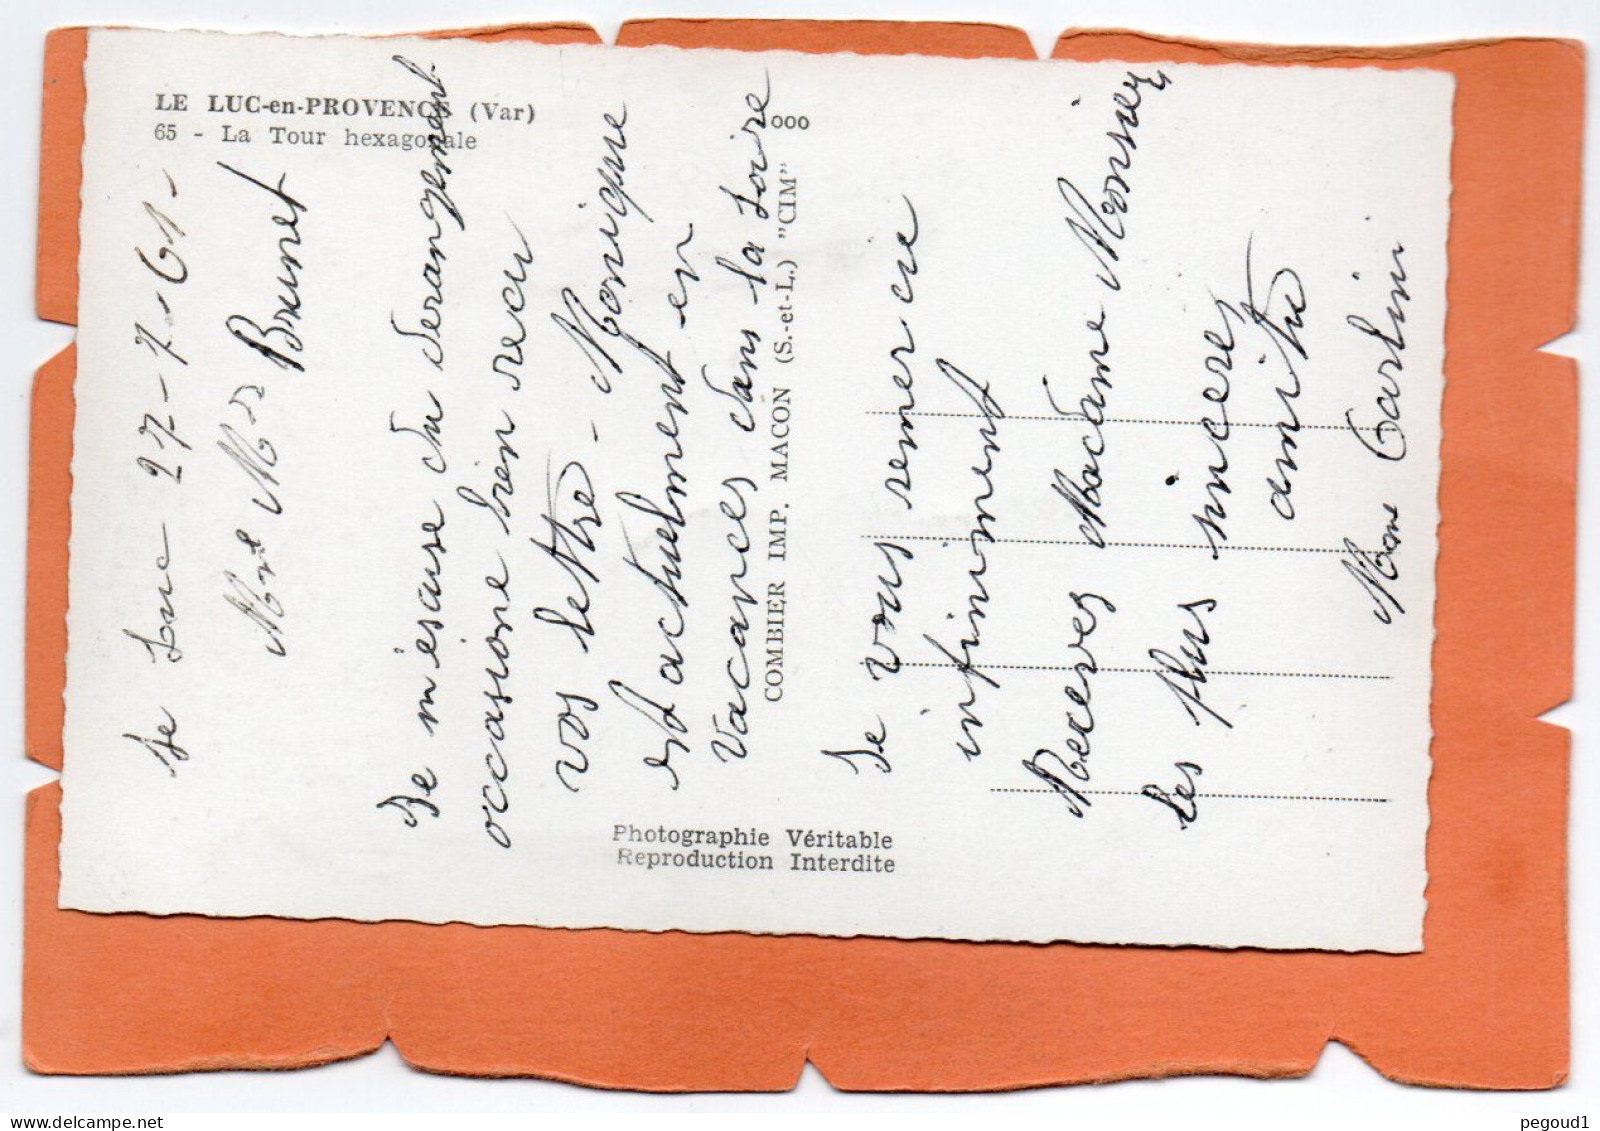 LE LUC-en-PROVENCE (Var)
65 - La Tour hexagonale
Le Luc 27-7-61-
Mme Mr Brunet
Je m'escuse du derangement
occasione bien recu
vos lettre - Monique
est actuelment en
vacances dans la Loire
000
COMBIER IMP. MACON (S.-et-L.) "CIM"
Je vous remercie
infiniment
Receves Madame Monsieur
les plus sinceres
amitié
Mme Carlini
Photographie Véritable
Reproduction Interdite
pegoud1